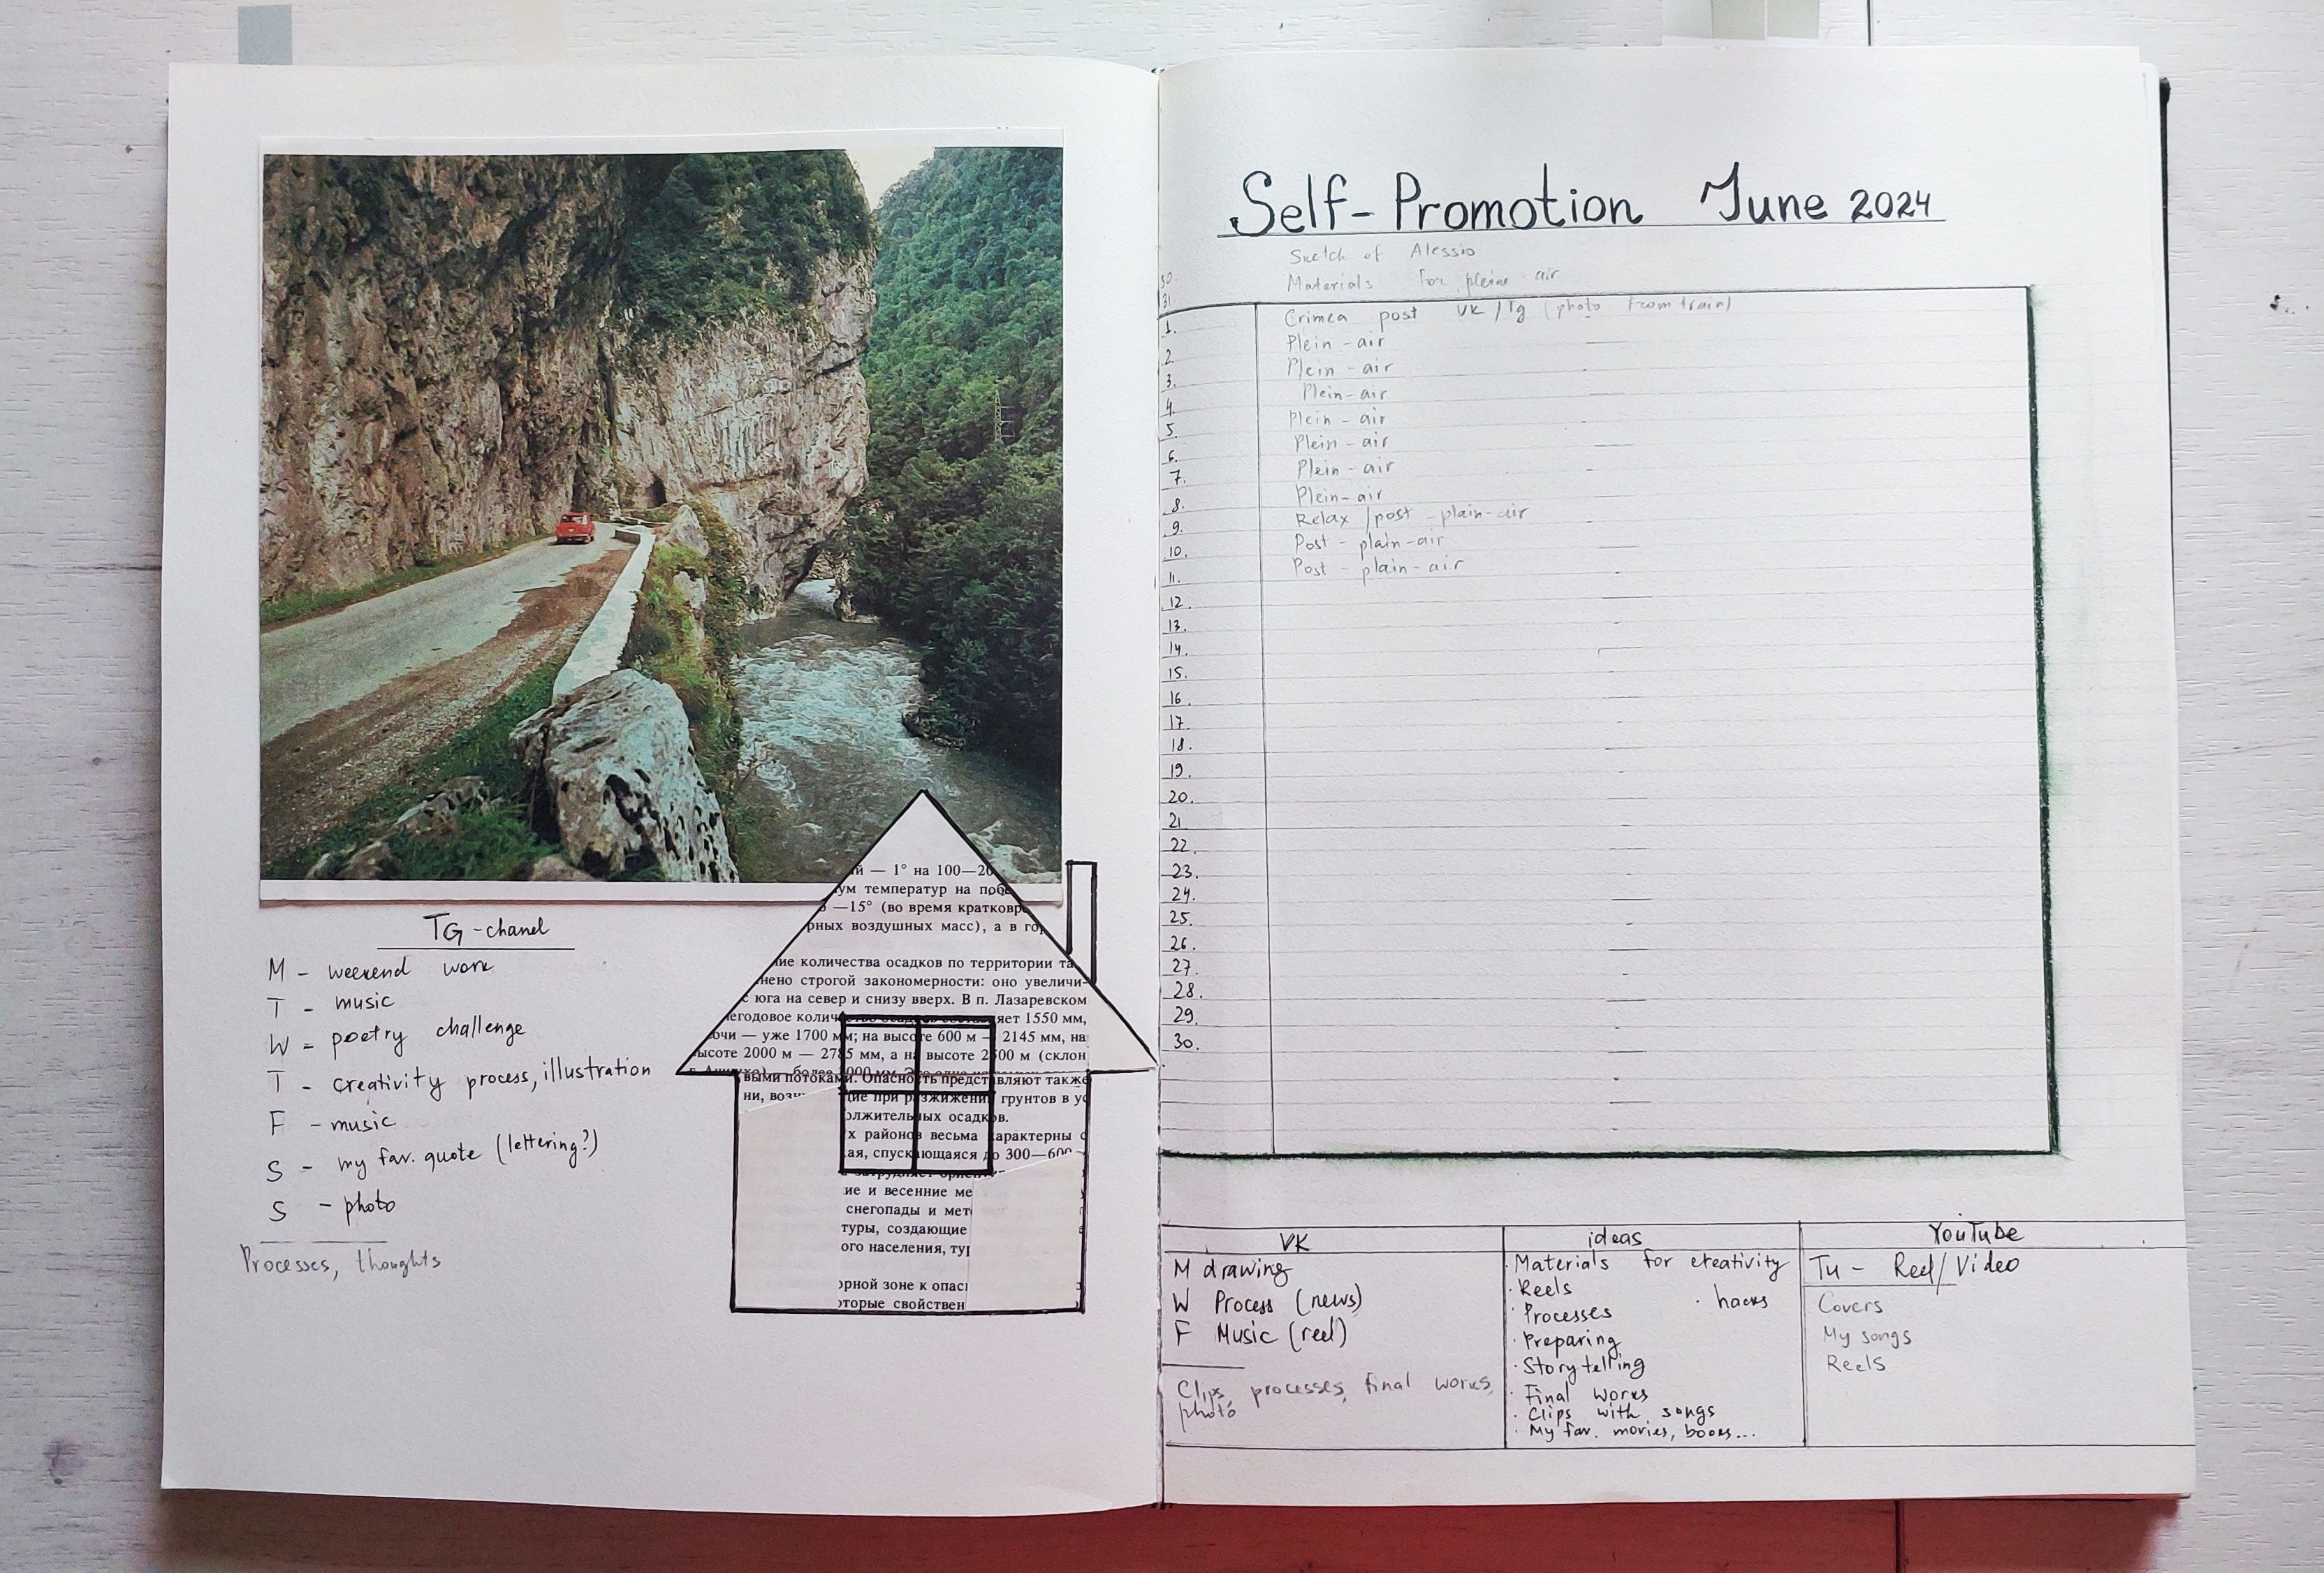 TG-chanel
M - weekend work
T - music
W - poetry challenge
T - creativity process, illustration
F - music
S - my fav. quote (lettering?)
S - photo
Processes, thoughts
й — 1° на 100—20
ум температур на побе
—15° (во время кратковр
рных воздушных масс), а в го
ие количества осадков по территории та
нено строгой закономерности: оно увеличи-
с юга на север и снизу вверх. В п. Лазаревском
егодовое количество осадков составляет 1550 мм,
очи — уже 1700 мм; на высоте 600 м — 2145 мм, на
ысоте 2000 м — 2785 мм, а на высоте 2500 м (склон
выми потоками. Опасность представляют также
ни, возни
ие при разжижении грунтов в ус
олжительных осадков.
х районов весьма характерны с
ая, спускающаяся до 300—600
ие и весенние ме
снегопады и мет
туры, создающие
ого населения, ту
орной зоне к опас
оторые свойствен
Self-Promotion June 2024
Sketch of Alessio
30. Materials for plein-air
31
1. Crimea post VK/Tg (photo from train)
2. Plein-air
3. Plein-air
4. Plein-air
5. Plein-air
6. Plein-air
7. Plein-air
8. Plein-air
9. Relax/post-plain-air
10. Post-plain-air
11. Post-plain-air
12.
13.
14.
15.
16.
17.
18.
19.
20.
21
22.
23.
24.
25.
26.
27.
28.
29.
30.
VK
M drawing
W Process (news)
F Music (reel)
Clips, processes, final works,
photo
ideas
· Materials for creativity
· Reels
· Processes · hacks
· Preparing
· Storytelling
· Final works
· Clips with songs
· My fav. movies, books...
YouTube
Tu - Reel/Video
Covers
My songs
Reels